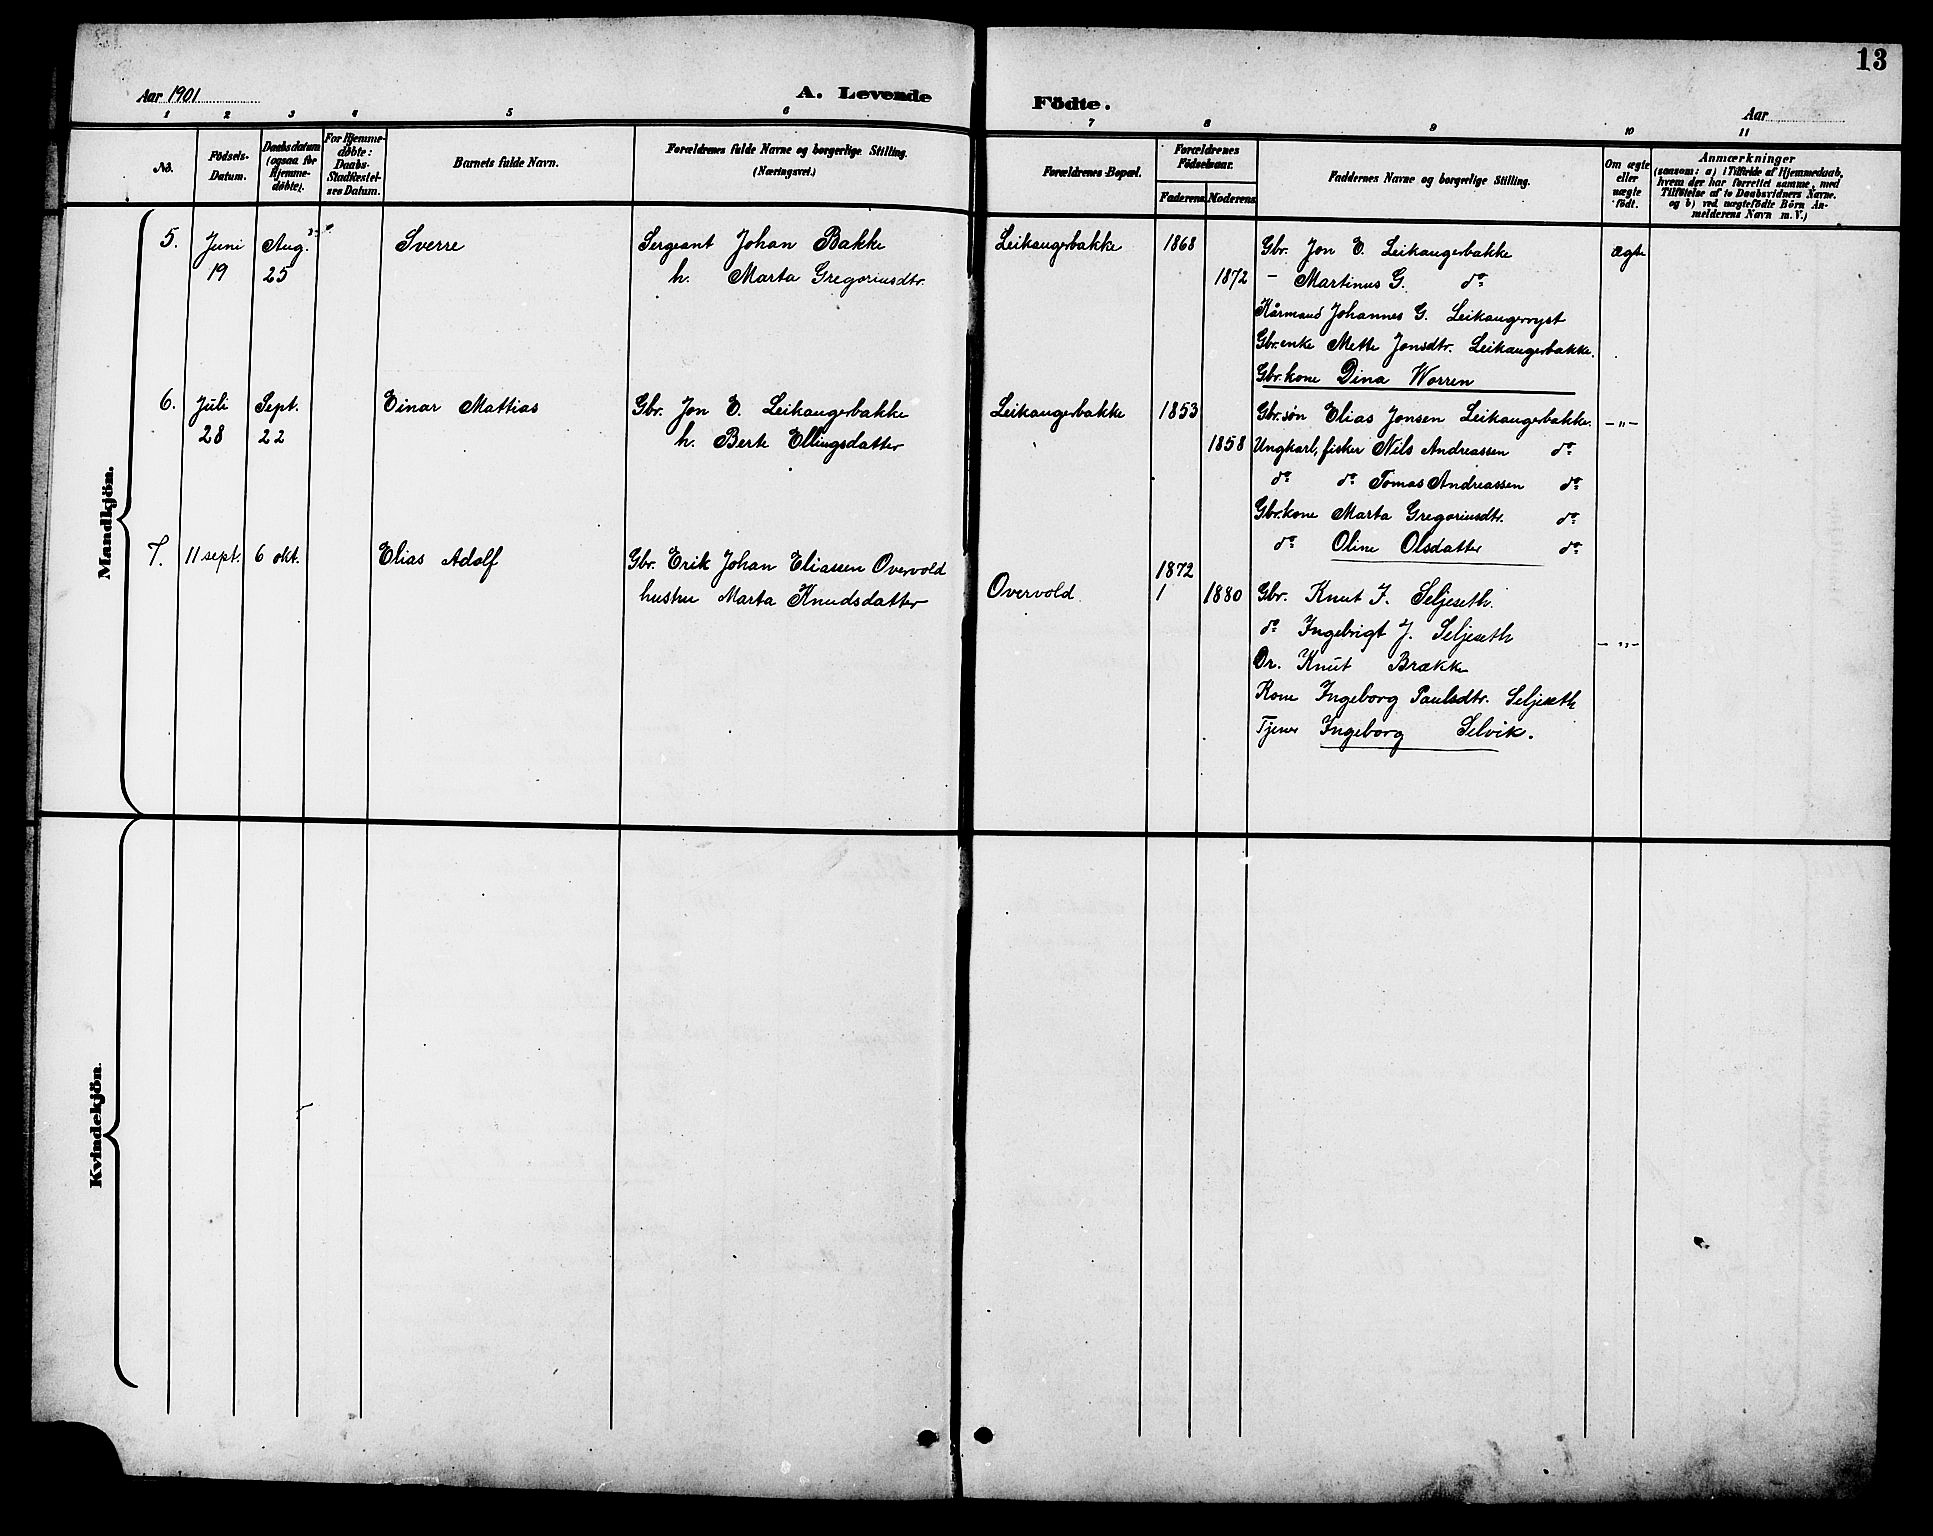 13
Aar 1901
A. Levende
Födte.
Aar
1 2 3 4 5 6 7 8 9 10 11
No.
Födsels-
Datum.
Daabsdatum
(ogsaa for
Hjemme-
døbte).
For Hjemme-
døbte:
Daabs-
Stadfæstel-
ses Datum.
Barnets fulde Navn.
Forældrenes fulde Navne og borgerlige Stilling.
(Næringsvei.)
Forældrenes Bopæl.
Forældrenes
Födselsaar.
Faderens
Moderens
Faddernes Navne og borgerlige Stilling.
Om ægte
eller
uægte
født.
Anmærkninger
(saasom: a) i Tilfælde af Hjemmedaab,
hvem der har forrettet samme, med
Tilföielse af to Daabsvidners Navne.
og b) ved uægtefödte Börn An-
melderens Navn m.V.)
Mandkjön.
5. Juni Aug. Sverre Sergeant Johan Bakke Leikangerbakke 1868 Gbr. Jon E. Leikangerbakke ægte
19 25 h. Marta Gregoriusdtr. 1872 - Martinus G. do
Kårmand Johannes G. Leikangernyst
Gbr.enke Mette Jonsdtr. Leikangerbakke.
Gbr.kone Dina Worren
6. Juli Sept. Einar Mattias Gbr. Jon E. Leikangerbakke Leikangerbakke 1853 Gbr.søn Elias Jonsen Leikangerbakke. -"-
28 22 h. Berte Ellingsdatter 1858 Ungkarl, fisker Nils Andreassen do
do do Tomas Andreassen do
Gbr.kone Marta Gregoriusdtr. do
do Oline Olsdatter do
7. 11 sept. 6 okt. Elias Adolf Gbr. Erik Johan Eliassen Overvold 1872
hustru Marta Knudsdatter Overvold 1 1880 Gbr. Knut J. Seljeseth.
do Ingebrigt J. Seljeseth -"-
Dr. Knut Brække
Kone Ingeborg Paulsdtr. Seljeseth
Tjener Ingeborg Selvik.
Kvindekjön.